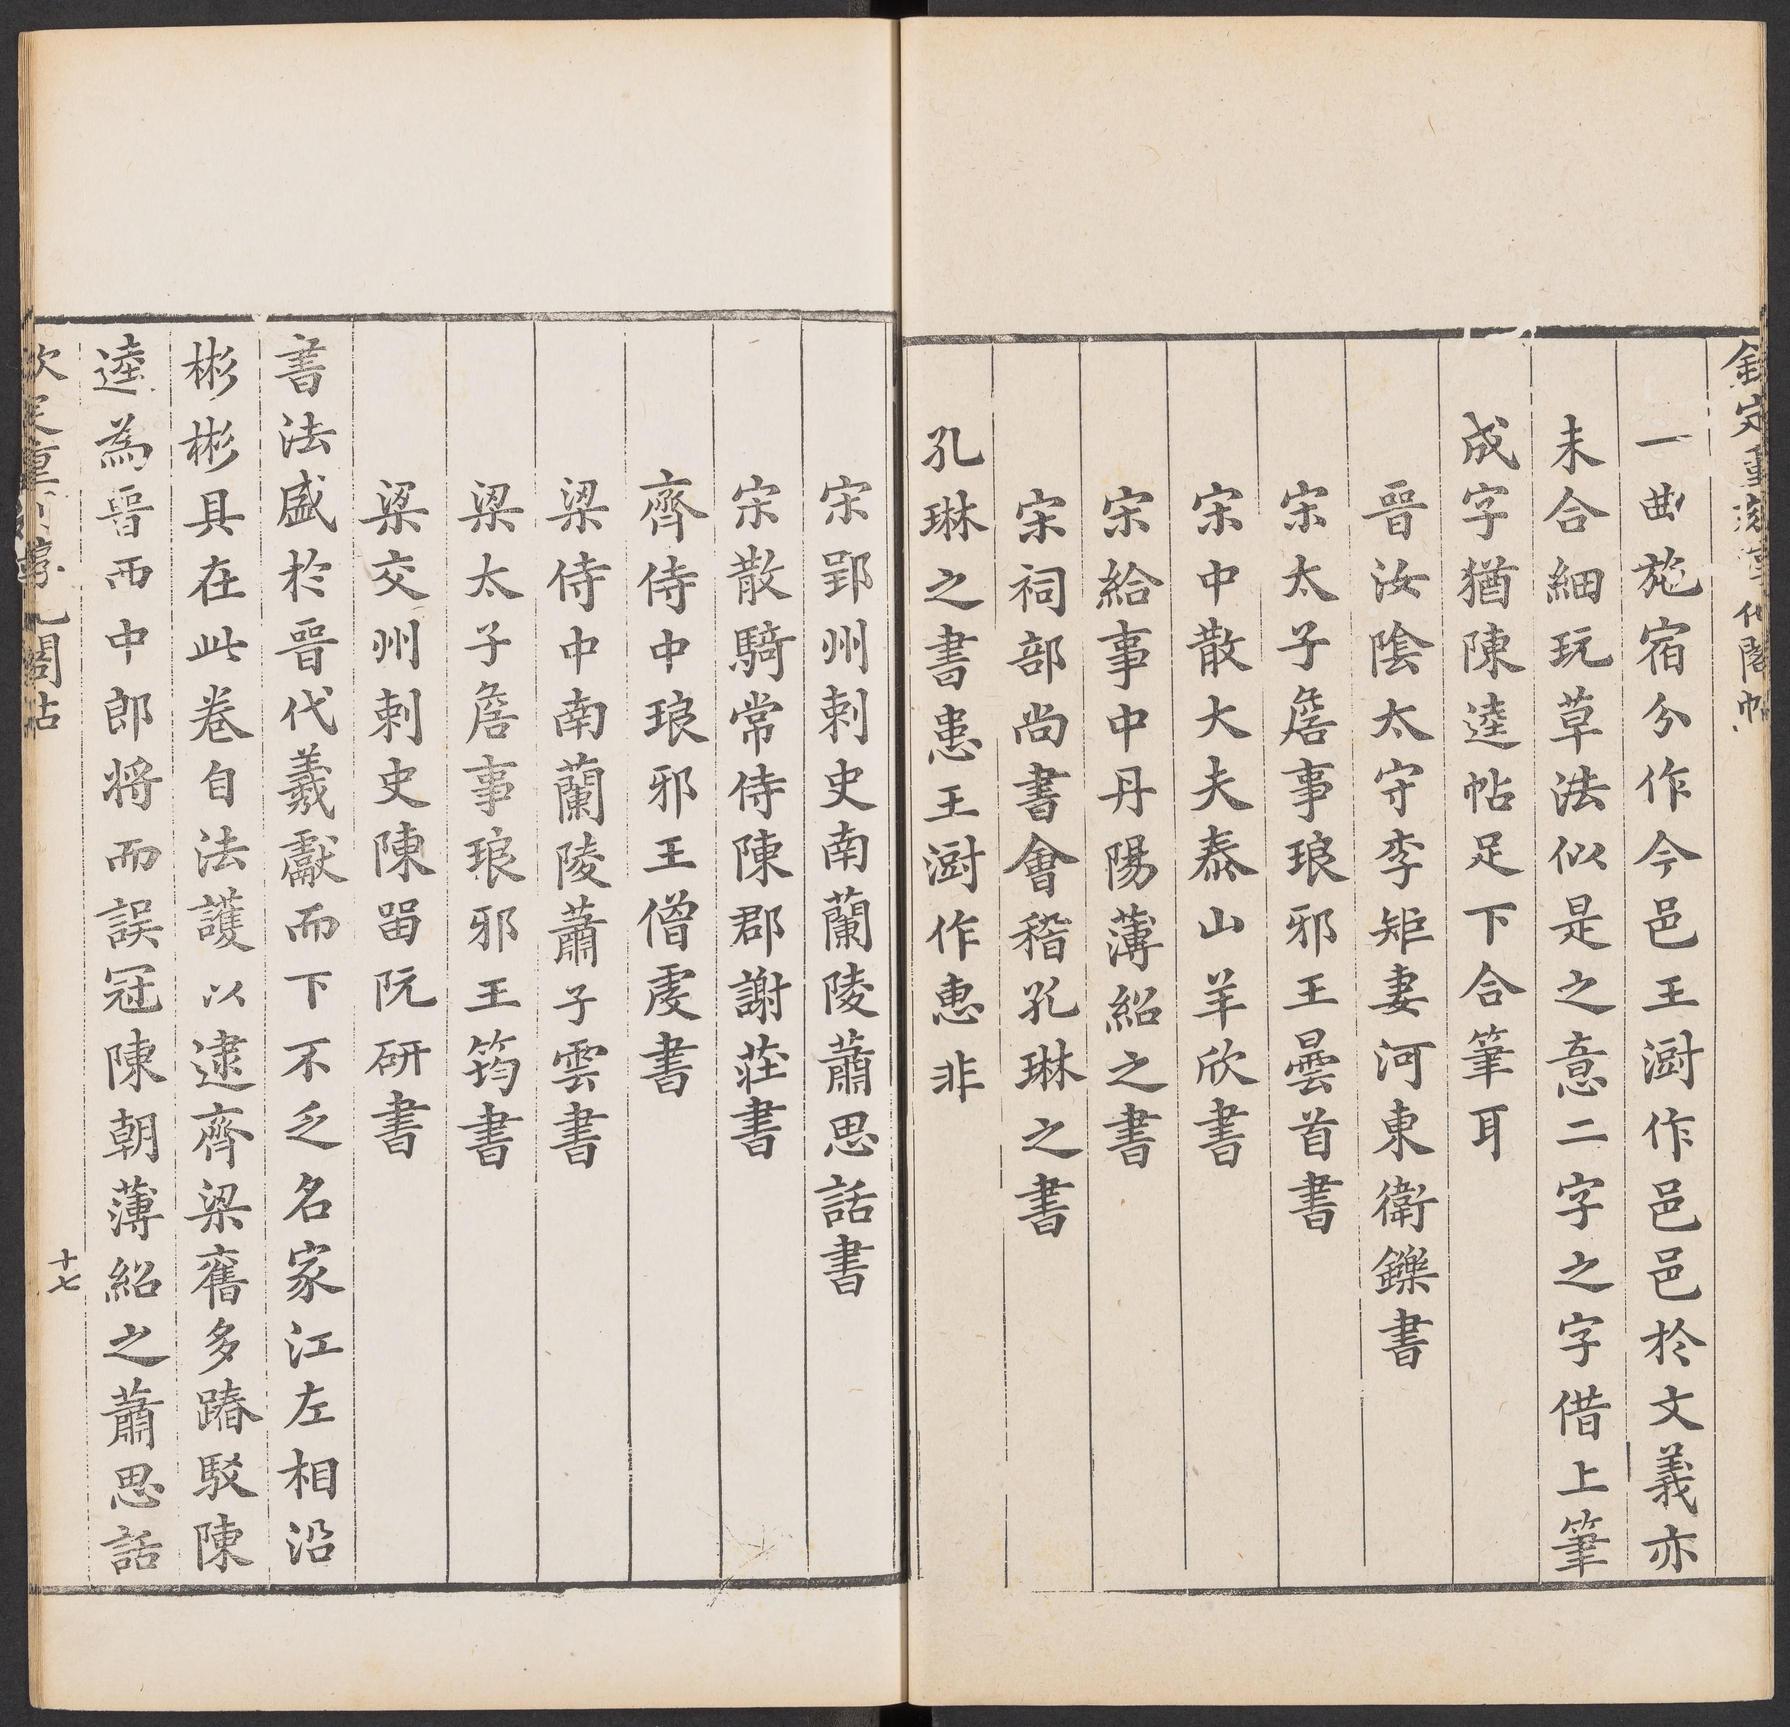 欽定重刻淳化閣帖
一𠚹施宿分作今邑王澍作邑邑於文義亦
未合細玩草法似是之意二字之字借上筆
成字猶陳逵帖足下合筆耳
晉汝陰太守李矩妻河東衛鑠書
宋太子詹事琅邪王曇首書
宋中散大夫泰山羊欣書
宋給事中丹陽薄紹之書
宋祠部尚書會稽孔琳之書
孔琳之書恚王澍作惠非
宋郢州刺史南蘭陵蕭思話書
宋散騎常侍陳郡謝莊書
齊侍中琅邪王僧虔書
梁侍中南蘭陵蕭子雲書
梁太子詹事琅邪王筠書
梁交州刺史陳留阮研書
書法盛於晉代羲獻而下不乏名家江左相沿
彬彬具在此卷自法護以逮齊梁舊多踳駁陳
逵為晉西中郎將而誤冠陳朝薄紹之蕭思話
十七